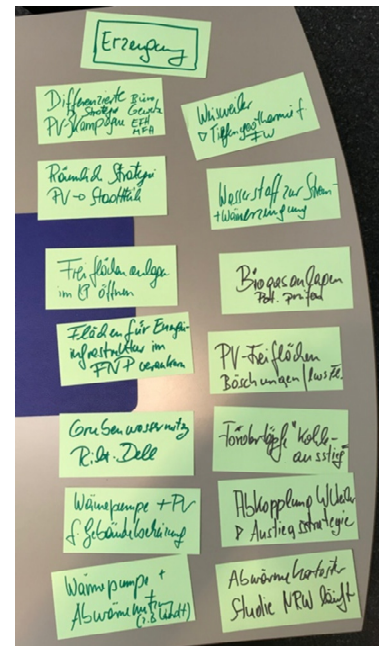 Erzeugung
Differenzierte Büro
Strategie Gewerbe
PV-Kampagnen EFH
MFH
Räumliche Strategie
PV → Stadtteile
Freiflächenanlagen
im öffnen
Flächen für Energie-
infrastruktur im
FNP verankern
Grubenwassernutz
Wärmepumpe + PV
f. Gebäudeheizung
Wärmepumpe +
Abwärmenutzen
Weisweiler
Tiefengeothermie f
FW
Wasserstoff zur Strom-
+ Wärmeerzeugung
Biogasanlagen
Pot. prüfen
PV-Freiflächen
Böschungen /
Fördertöpfe "Kohle-
ausstieg"
Abkopplung
Austiegsstrategie
Abwärmekataster
Studie NRW läuft